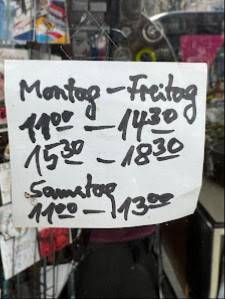 Montag - Freitag
11⁰⁰ - 14³⁰
15³⁰ - 18³⁰
Samstag
11⁰⁰ - 13⁰⁰